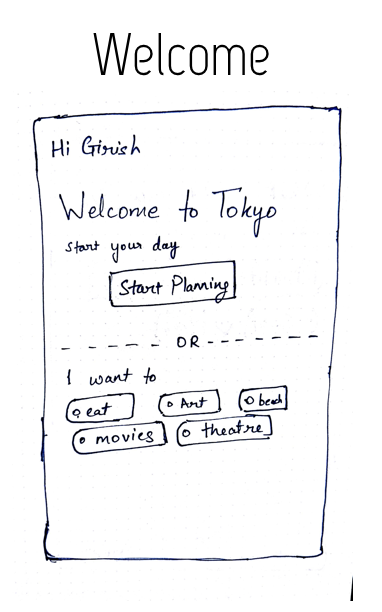 Welcome
Hi Girish
Welcome to Tokyo
Start your day
Start Planning
OR
I want to
eat Art beach
movies theatre